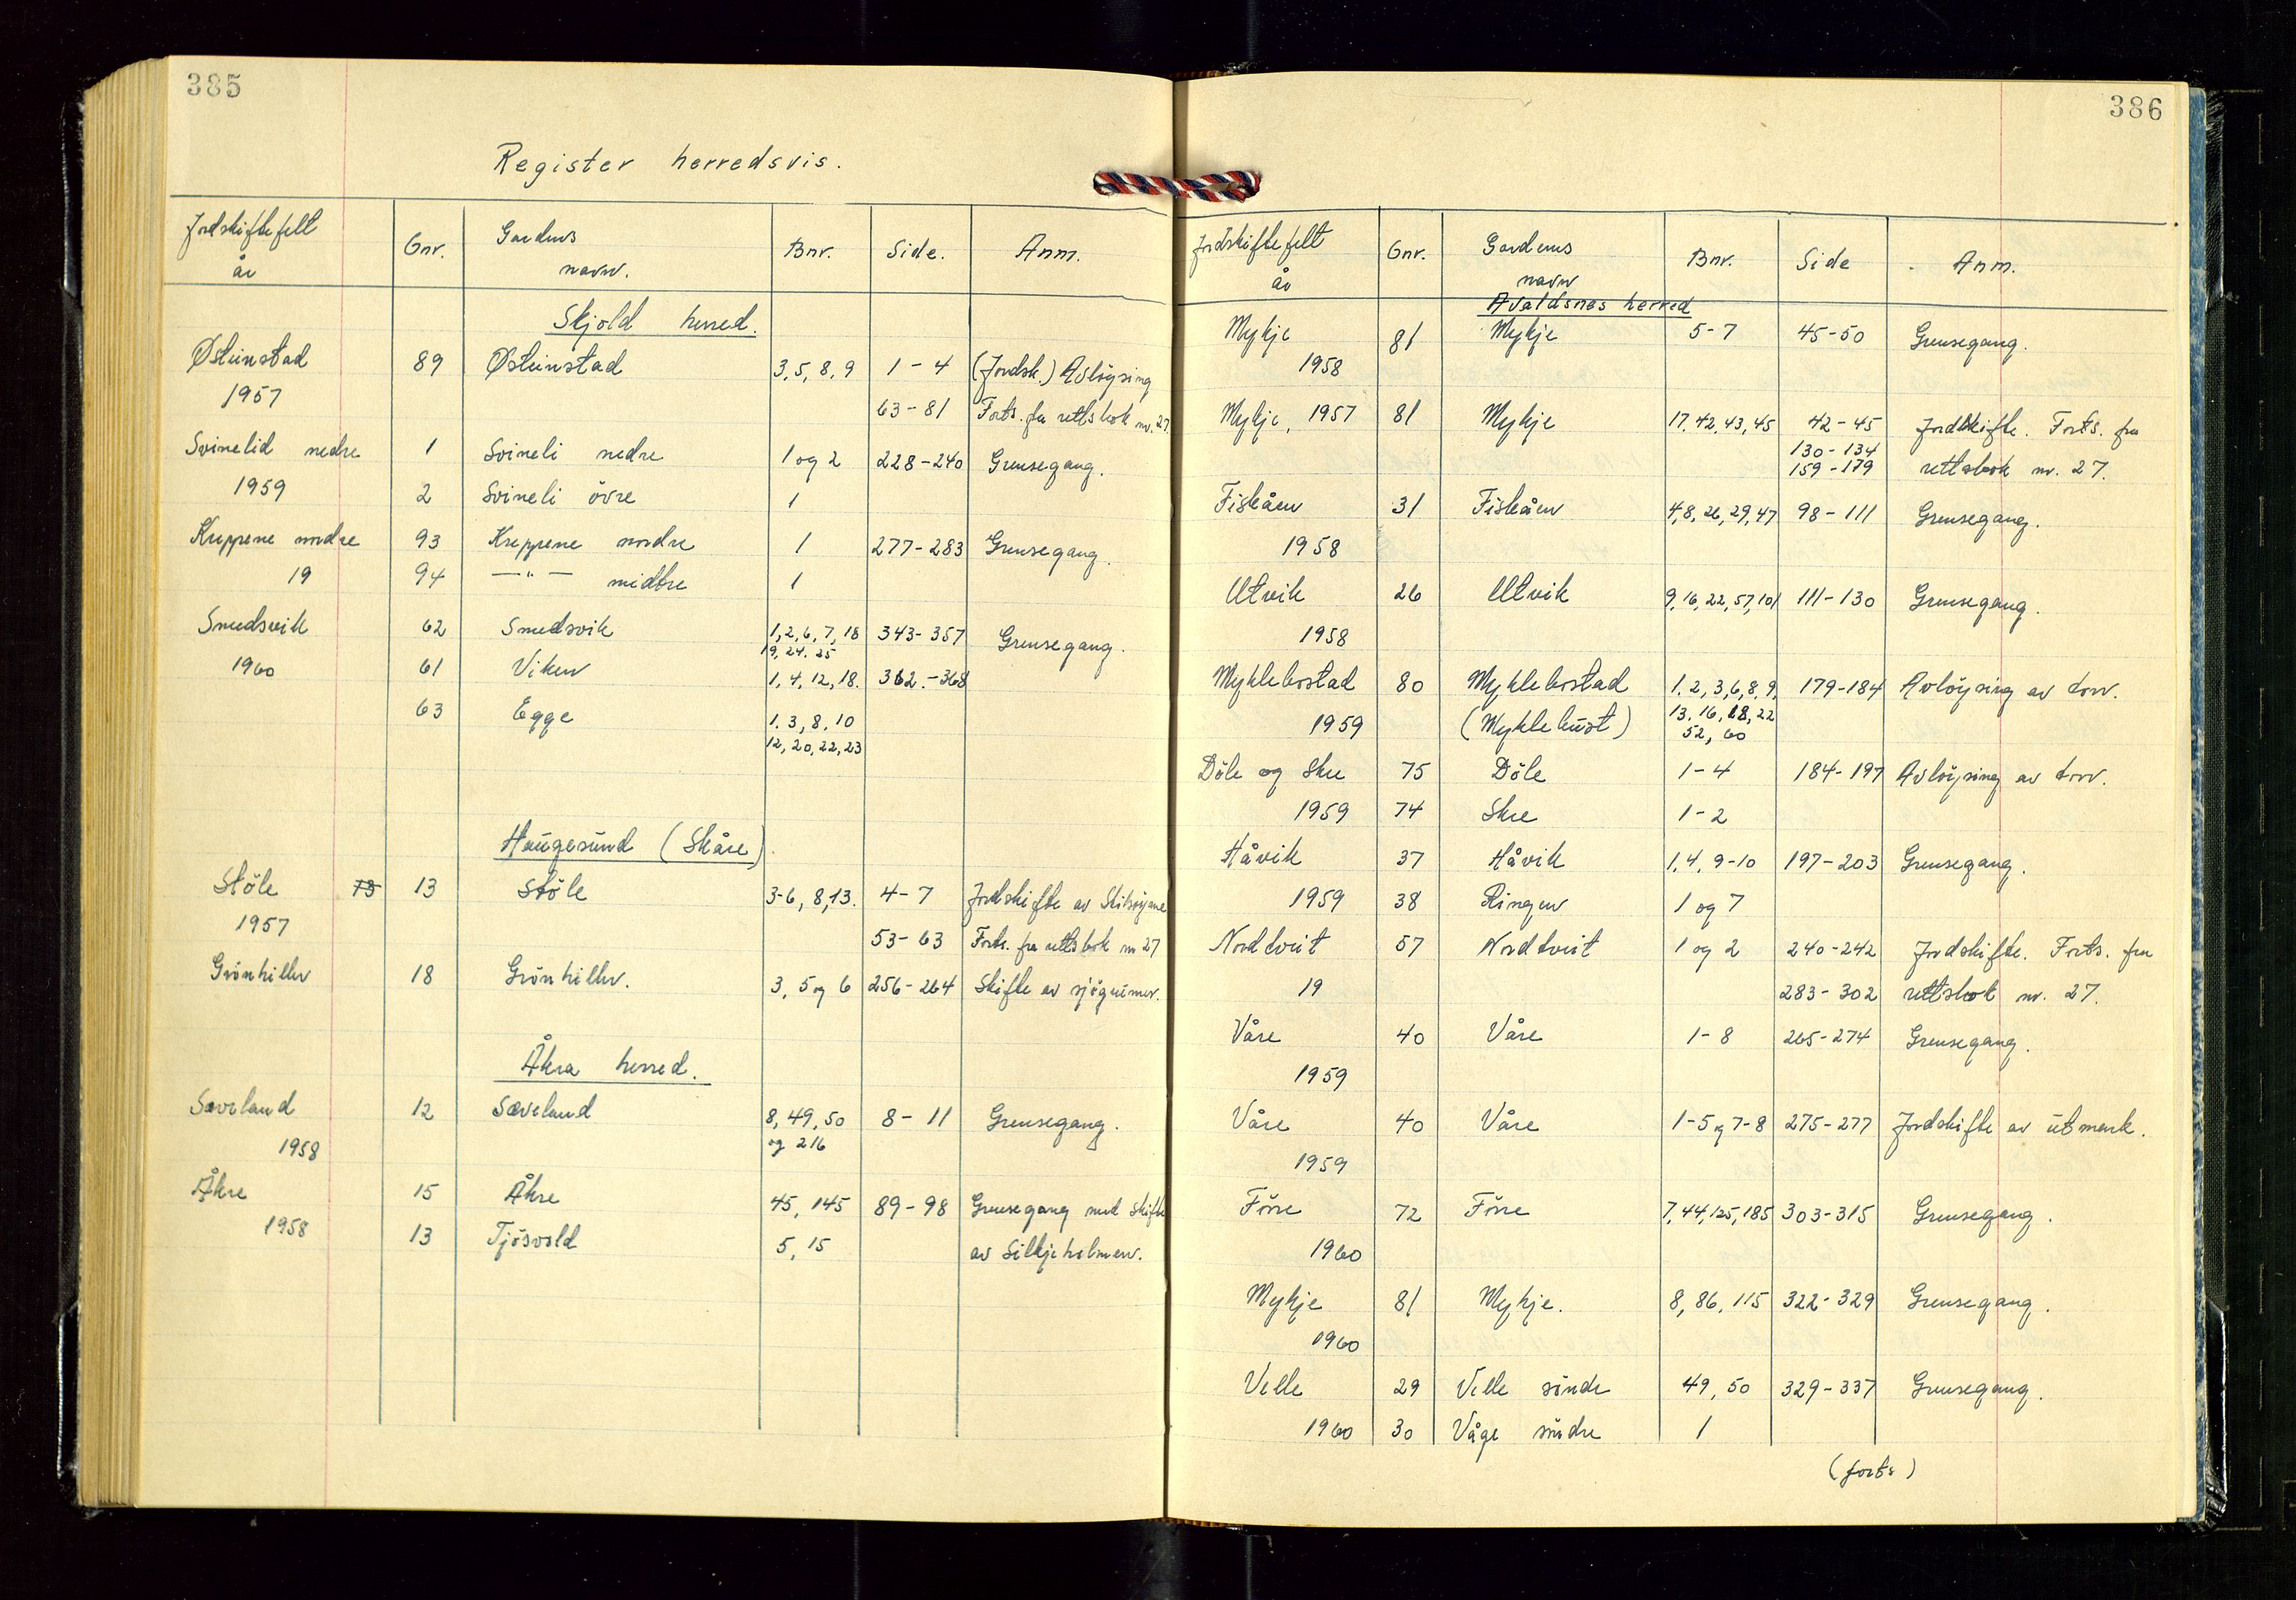 385
Register herredsvis.
Jordskiftefelt år Gnr. Gardens navn. Bnr. Side. Anm.
Skjold herred.
Østeinstad 89 Østeinstad 3, 5, 8, 9 1 - 4 (Jordsk.) Avlöysing
1957 63 - 81 Forts. fra rettsbok nr. 27.
Svinelid nedre 1 Svineli nedre 1 og 2 228 - 240 Grensegang.
1959 2 Svineli övre 1
Kreppene nordre 93 Kreppene nordre 1 277 - 283 Grensegang.
19 94 — " — midtre 1
Smedsvik 62 Smedsvik 1, 2, 6, 7, 18 343 - 357 Grensegang.
19, 24. 25
1960 61 Viken 1, 4, 12, 18. 362. - 368
63 Egge 1. 3, 8, 10
12, 20, 22, 23
Haugesund (Skåre).
Stöle 13 13 Stöle 3-6, 8, 13. 4 - 7 Jordskifte av
1957 53 - 63 Forts. fra rettsbok nr 27
Grönhillen 18 Grönhillen. 3, 5 og 6 256 - 264 Skifte av
Åkra herred.
Sæveland 12 Sæveland 8, 49, 50 8 - 11 Grensegang.
1958 og 216
Åkre 15 Åkre 45, 145 89 - 98 Grensegang med skifte
1958 13 Tjösvold 5, 15 av Silkjeholmen.
386
Jordskiftefelt år Gnr. Gardens navn Bnr. Side Anm.
Avaldsnes herred
Mykje 81 Mykje 5 - 7 45 - 50 Grensegang.
1958
Mykje, 1957 81 Mykje 17, 42, 43, 45 42 - 45 Jordskifte. Forts. fra
130 - 134
159 - 179 rettsbok nr. 27.
Fiskåen 31 Fiskåen 4, 8, 26, 29, 47 98 - 111 Grensegang.
1958
Utvik 26 Utvik 9, 16, 22, 57, 101 111 - 130 Grensegang.
1958
Myklebostad 80 Myklebostad 1, 2, 3, 6, 8, 9, 179 - 184 Avlöysing av torv.
1959 (Myklebust) 13, 16, 18, 22
52, 60
Döle og Skre 75 Döle 1 - 4 184 - 197 Avlöysing av torv.
1959 74 Skre 1 - 2
Håvik 37 Håvik 1, 4, 9-10 197 - 203 Grensegang.
1959 38 Ringen 1 og 7
Nordtveit 57 Nordtveit 1 og 2 240 - 242 Jordskifte. Forts. fra
19 283 - 302 rettsbok nr. 27.
Våre 40 Våre 1 - 8 265 - 274 Grensegang.
1959
Våre 40 Våre 1-5 og 7-8 275 - 277 Jordskifte av utmark.
1959
Förre 72 Förre 7, 44, 125, 185 303 - 315 Grensegang.
1960
Mykje 81 Mykje. 8, 86, 115 322 - 329 Grensegang.
1960
Velle 29 Velle söndre 49, 50 329 - 337 Grensegang.
1960 30 Våge söndre 1
(forts)